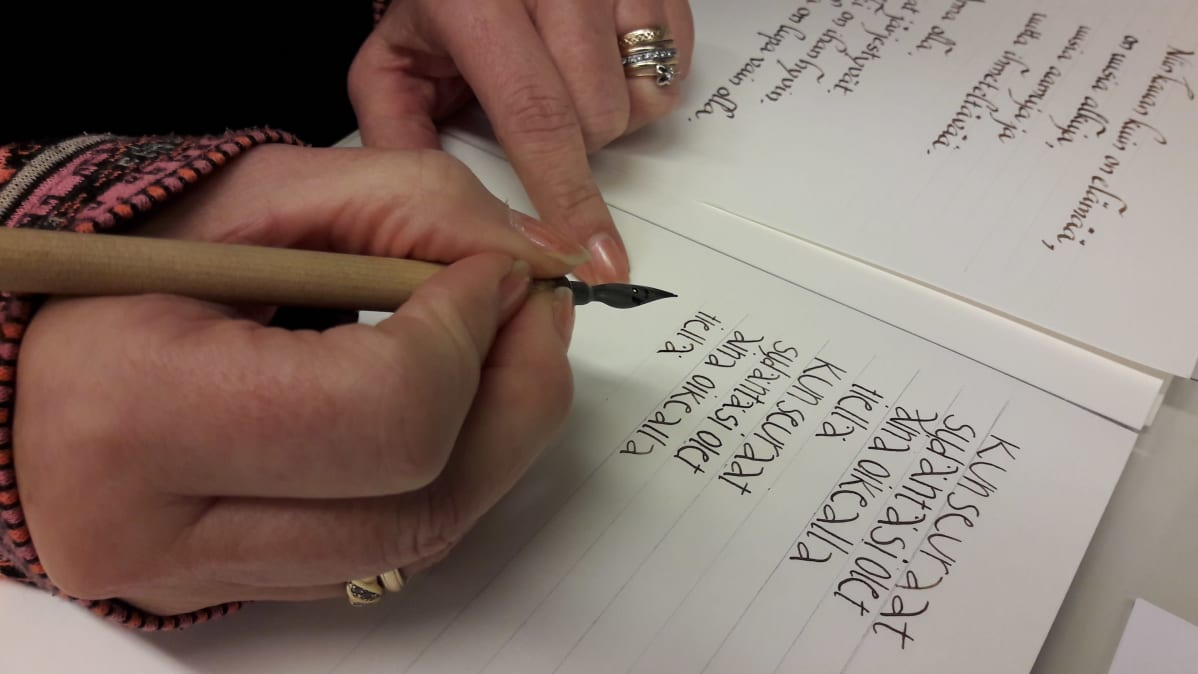 Niin kauan kuin on elämää,
on uusia alkuja,
uusia aamuja ja
uutta ihmeteltävää.
olla
järjestyvät.
on ihan hyvin.
on lupa vain olla.
Kun seuraat
sydäntäsi olet
aina oikealla
tiellä
Kun seuraat
sydäntäsi olet
aina oikealla
tiellä